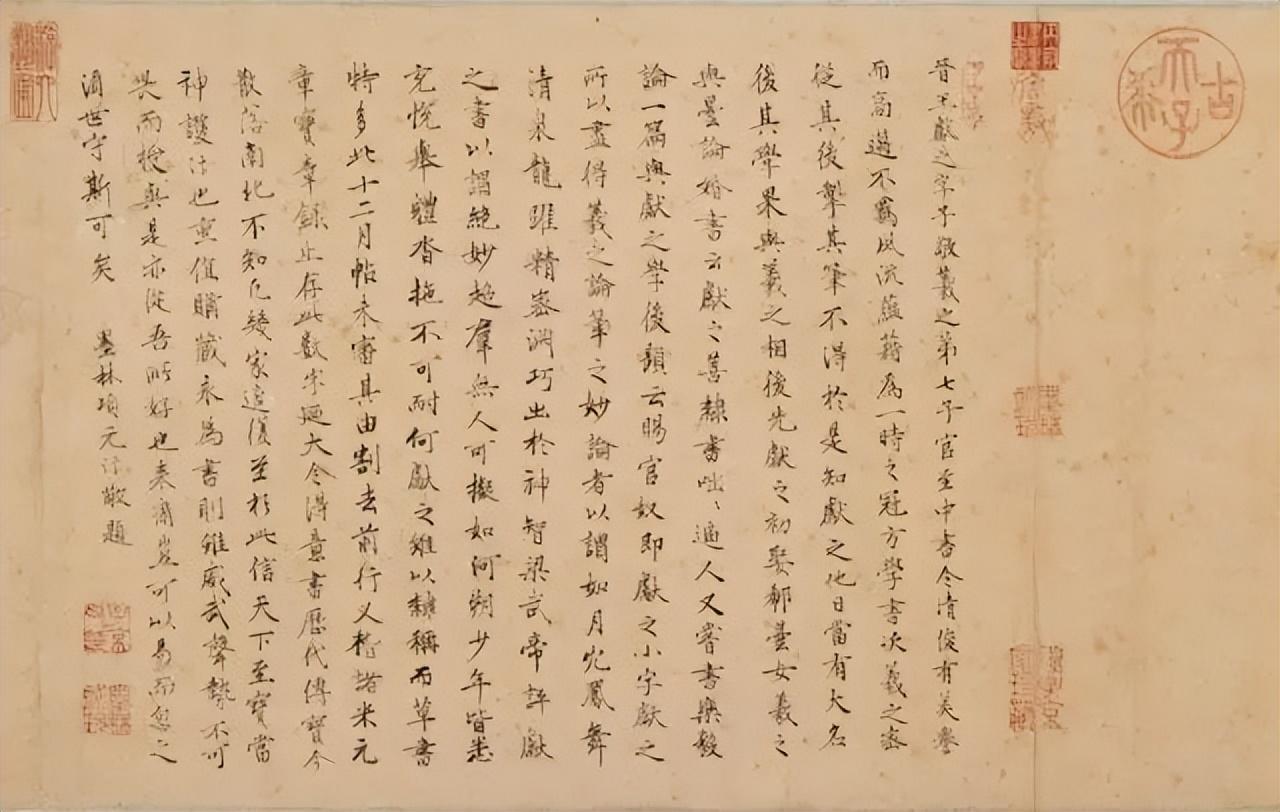 古希天子
晉王獻之字子敬羲之第七子官至中書令清俊有美譽
而高邁不羈風流蘊藉為一時之冠方學書次羲之密
從其後掣其筆不得於是知獻之他日當有大名
後其學果與羲之相後先獻之初娶郗曇女羲之
與曇論婚書云獻之善隸書咄〻逼人又嘗書樂毅
論一篇與獻之學後題云賜官奴即獻之小字獻之
所以盡得羲之論筆之妙論者以謂如丹穴鳳舞
清泉龍躍精密淵巧出於神智梁武帝評獻
之書以謂絕妙超羣無人可擬如河朔少年皆悉
充悅舉體沓拖不可耐何獻之雖以隸稱而草書
特多此十二月帖未審其由割去前行又稽諸米元
章寶章錄止存此數字廼大令得意書歷代傳寶今
散落南北不知凡幾家邅復至於此信天下至寶當
神護訶也重值購藏永為書則雖威武聲勢不可
畏而授與是亦從吾所好也來裔豈可以易而忽之
須世守斯可矣 墨林項元汴敬題